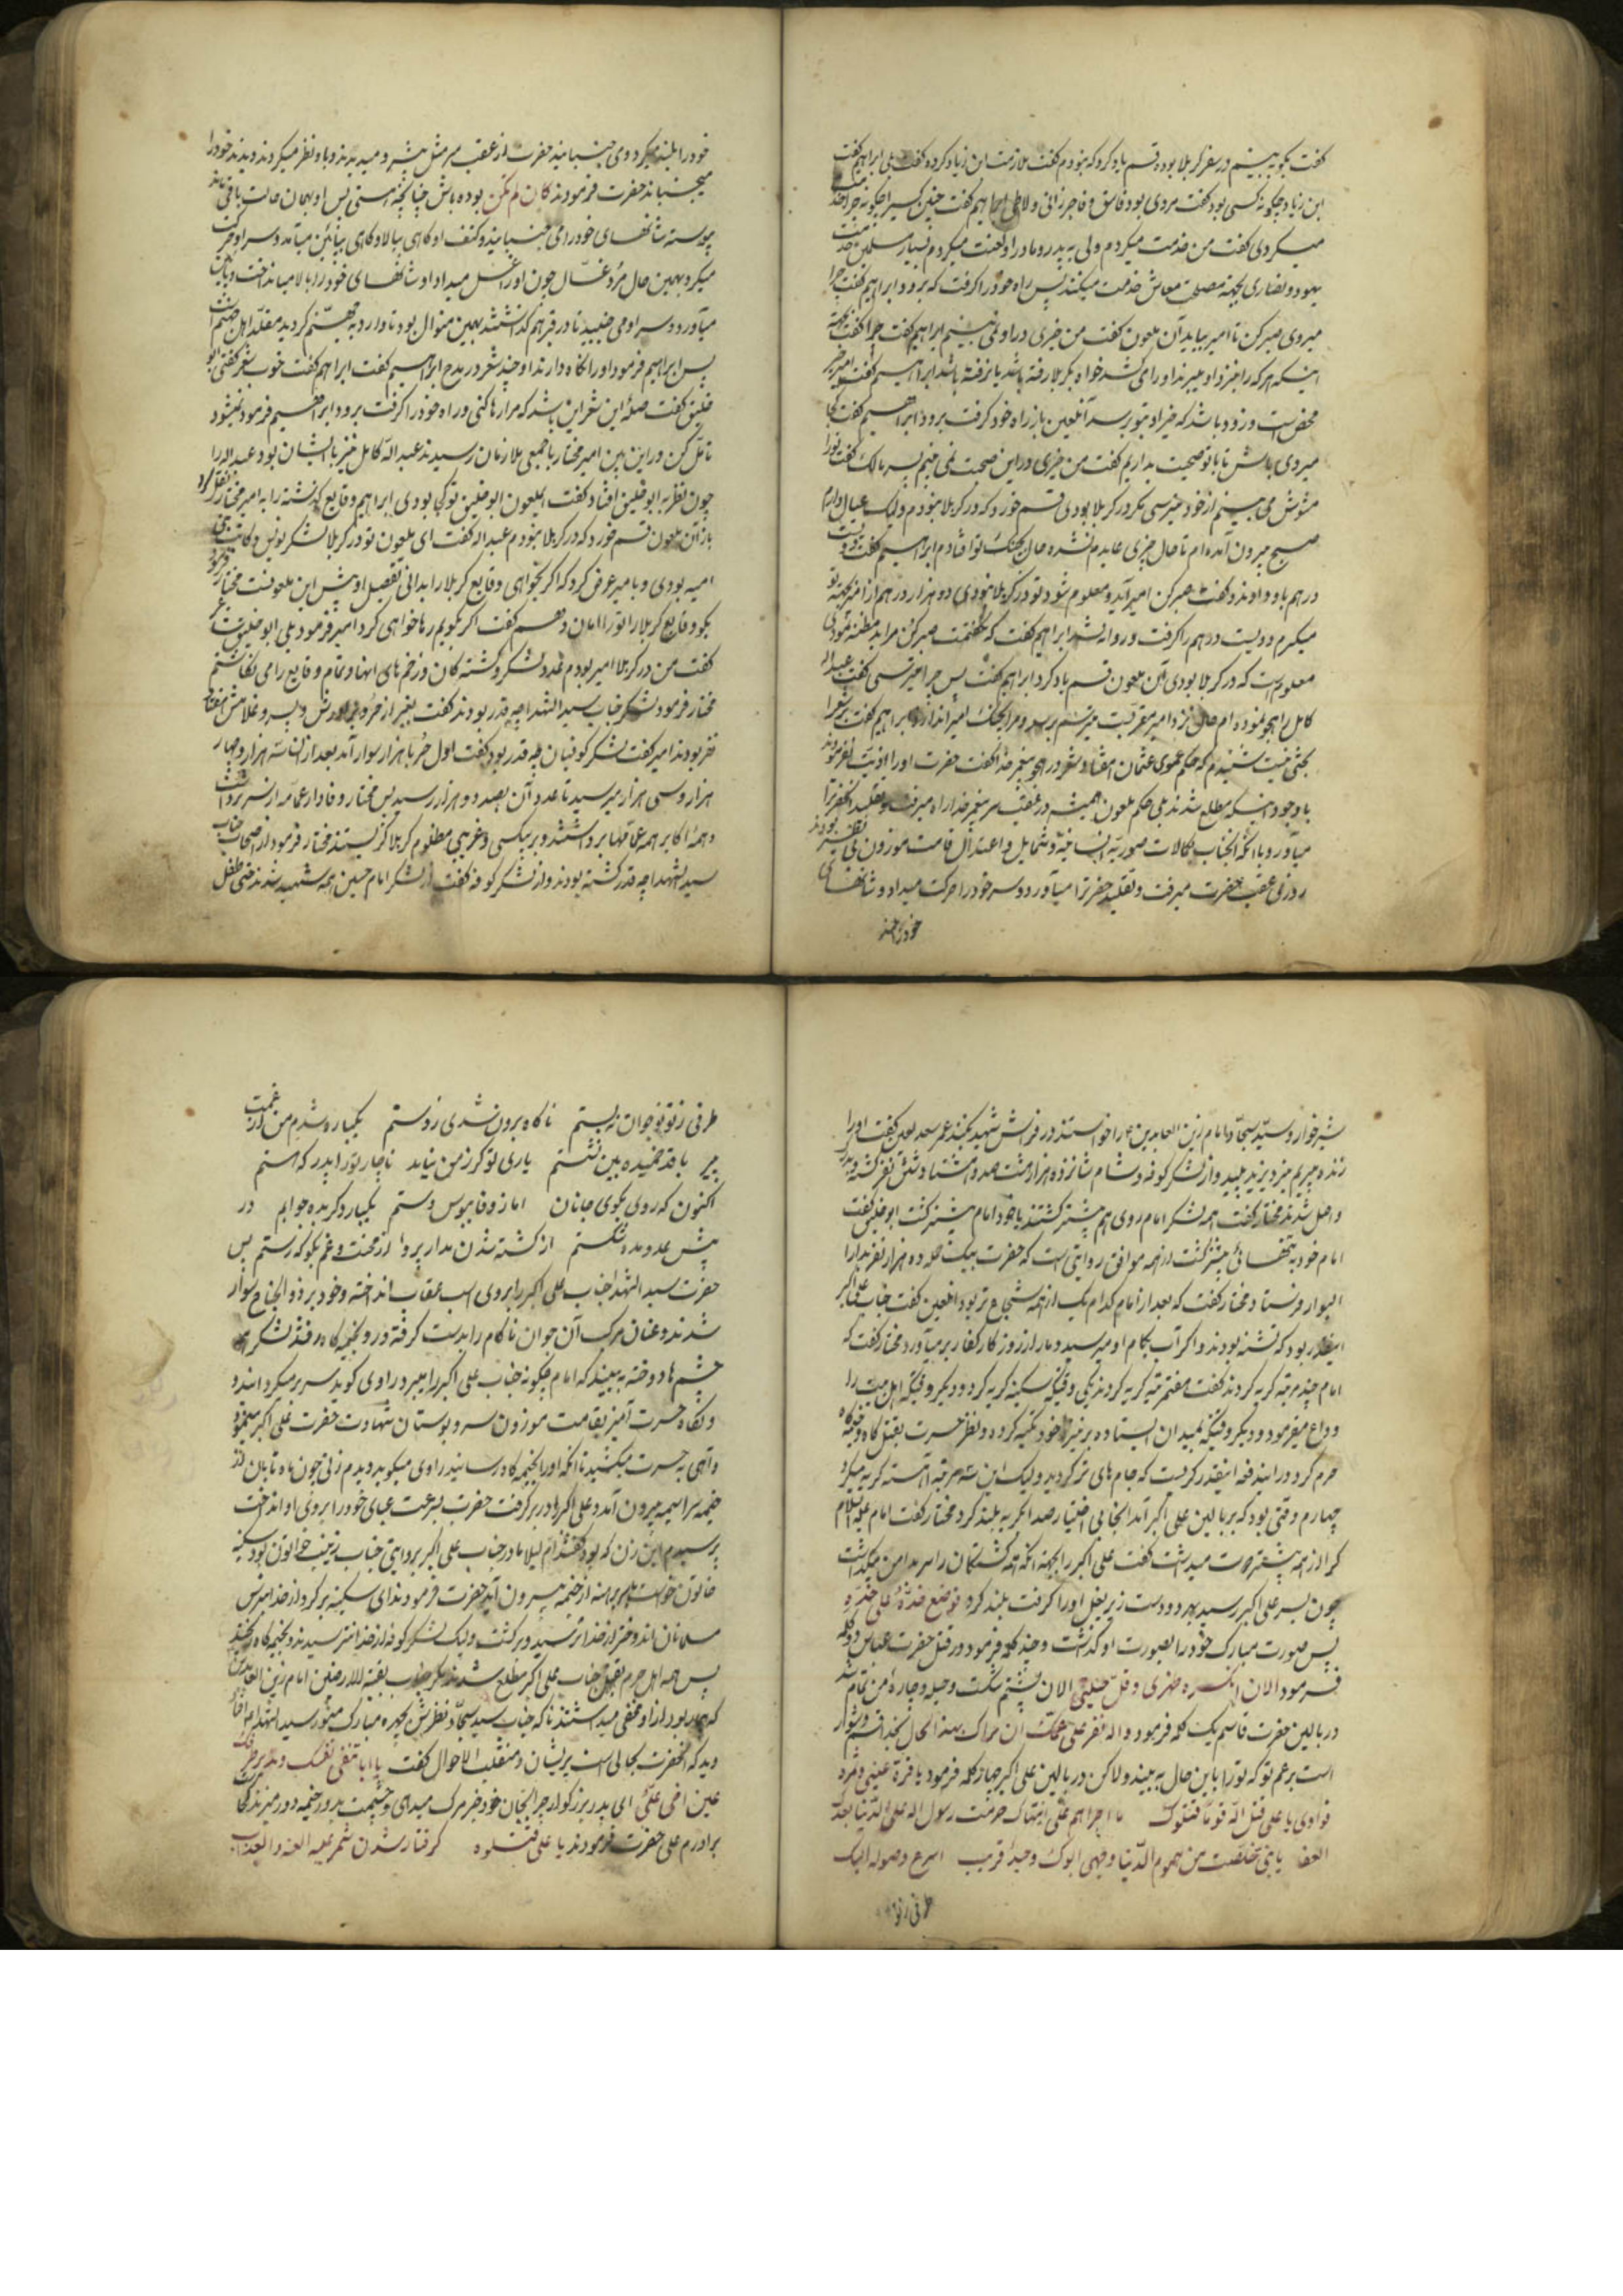 گفت بگو ببینم در سفر کربلا بوده قسم یاد کرد که نبودم گفت ملازمت ابن زیاد کرده گفت بلی ابراهیم گفت
ابن زیاد چگونه کسی بود گفت مردی بود فاسق و فاجر زانی و لاطی ابراهیم گفت چنین کسیرا چگونه چرا خدمت
میکردی گفت من خدمت میکردم ولی به پدر و مادر او لعنت میکردم بسیار مسلمین خدمت
یهود و نصاری بجهة مصلحت معاش خدمت میکنند پس راه خود را گرفت که برود ابراهیم گفت چرا
میروی صبر کن تا امیر بیاید آن ملعون گفت من خیری در او نمی بینم ابراهیم گفت چرا گفت بجهة
اینکه هر که را نزد او میبرند او را می کشد خواه بکربلا رفته باشد یا نرفته باشد ابراهیم گفت
محض است و زود باشد که خبر او بتو برسد آنلعین باز راه خود گرفت برود ابراهیم گفت کجا
میروی باش تا با تو صحبت بداریم گفت من خیری در این صحبت نمی بینم پسر مالک گفت ترا
مشوش می بینم از خود میترسی مگر در کربلا بودی قسم خورد که در کربلا نبودم ولیک عیال دارم
صبح بیرون آمده ام تا حال چیزی عایدم نشده حال بچنگ تو افتادم ابراهیم گفت دویست
درهم باو دادند و گفت صبر کن امیر آید و معلوم شود تو در کربلا نبودی دو هزار درهم از امیر بجهة تو
میگیرم دویست درهم را گرفت و روانه شد ابراهیم گفت که نگفتمت صبر کن مرا بد مظنه
معلومست که در کربلا بودی آن ملعون قسم یاد کرد ابراهیم گفت پس چرا میترسی گفت عبداله
کامل را هجو نموده ام حال نزد امیر مقربست میترسم برسد و مرا بچنگ امیر اندازد ابراهیم گفت
بحثی نیست شنیدم که حکم عموی عثمان هفتاد شعر در هجو پیغمبر خدا گفت حضرت او را اذیت نفرمودند
با وجود اینکه مطلع شدند بلی حکم ملعون همیشه در عقب سر پیغمبر خدا راه میرفت و تقلید آنحضرترا
میآورد با آنکه آنجناب بکمالات صوریه انسانیه و شمایل و اعتدال قامت موزون بی نظیر بودند
روزی عقب حضرت میرفت و تقلید حضرترا میآورد و سر خود را حرکت میداد و شانهای
خود را بلند
خود را بلند میکرد و می جنبانید حضرت از عقب سر مثل پیشرو میدیدند و باو نظر میکردند دیدند خود را
میجنباند حضرت فرمودند کان م کن بوده باش چنانچه هستی پس او بهمان حالت باقی ماند
پیوسته شانهای خود را می جنبانید و کتف او گاهی ببالا و گاهی بپائین میآمد و سر او حرکت
میکرد بهمین حال مرد غسال چون او را غسل میداد او شانهای خود را ببالا میانداخت و پائین
میآورد و سر او می جنبید تا در قبر هم گذاشتند بهمین منوال بود تا وارد جهنم گردید
پس ابراهیم فرمود او را نگاه دارند او چند شعر در مدح ابراهیم گفت ابراهیم گفت خوب شعر گفتی ابو
خلیق گفت صله این شعر این باشد که مرا رها کنی و راه خود را گرفت برود ابراهیم فرمود نمیشود
تأمل کن در این بین امیر مختار با جمعی ملازمان رسیدند عبداله کامل نیز با ایشان بود عبداله را
چون نظر به ابو خلیق افتاد گفت ایملعون ابو خلیق تو کجا بودی ابراهیم وقایع گذشته را به امیر مختار نقل کرد
باز آن ملعون قسم خورد که در کربلا نبودم عبداله گفت ای ملعون تو در کربلا لشکر نویس و کاتب بنی
امیه بودی و با میر عرض کرد که اگر بخواهی وقایع کربلا را بدانی بتفصیل او پیش این ملعونست مختار فرمود
بگو وقایع کربلا را تو را امان دهم گفت اگر بگویم رها خواهی کرد امیر فرمود بلی ابو خلیق
گفت من در کربلا امیر بودم عدد لشکر و کشته گان و زخم های آنها و تمام وقایع را می نگاشتم
مختار فرمود لشکر جناب سید الشهدا چه قدر بودند گفت بغیر از حر و برادرش و پسر و غلامش هفتاد
نفر بودند امیر گفت لشکر کوفیان چه قدر بود گفت اول حر با هزار سوار آمد بعد از آن سه هزار و چهار
هزار و سی هزار میرسید تا عدد آن بصد و دو هزار رسید پس مختار وفادار عمامه از سر برداشت
و همه اکابر همه عمامها برداشتند و بر بیکسی و غریبی مظلوم کربلا گریستند مختار فرمود از اصحاب جناب
سید الشهدا چه قدر کشته بودند و از لشکر کوفه گفت از لشکر امام حسین همه شهید شدند حتی طفل
شیرخوار و سید سجاد امام زین العابدین را خواستند در فراش شهید کنند عمر سعد لعین گفت او را
زنده میبریم نزد یزید پلید و از لشکر کوفه و شام شانزده هزار هشت صد و هشتاد و شش نفر کشته و بدرک
واصل شدند مختار گفت همه لشکر امام روی هم بیشتر کشتند یا خود امام بیشتر کشت ابو خلیق گفت
امام خود به تنهائی بیشتر کشت از همه موافق روایتی است که حضرت بیک حمله ده هزار نفر بدار
البوار فرستاد مختار گفت که بعد از امام کدام یک از همه شجاع تر بود آنلعین گفت جناب علی اکبر
اینقدر بود که تشنه بودند و اگر آب بکام او میرسید دمار از روزگار کفار بر میآورد مختار گفت که
امام چند مرتبه گریه کردند گفت هفتم مرتبه گریه کردند یکی وقتیکه سکینه گریه کرد و دیگر وقتیکه اهل بیت را
وداع میفرمود و دیگر وقتیکه بمیدان ایستاده بر نیزه خود تکیه کرده و نظر حسرت بقتلگاه و خیمه گاه
حرم کرد در ایندفعه اینقدر گریست که جام های تر گردید ولیک این سه مرتبه آهسته گریه میکرد
چهارم وقتی بود که بر بالین علی اکبر آمد آنجا بی اختیار صدا بگریه بلند کرد مختار گفت امام علیه السلام
کرا از همه بیشتر دوست میداشت گفت علی اکبر را بجهة آنکه همه کشتگان را سر بدامن میگذاشت
چون بسر علی اکبر رسید بهر دو دست زیر بغل او را گرفت بلند کرد فوضع خده علی خده
پس صورت مبارک خود را بصورت او گذاشت و چند کلمه فرمود در قتل حضرت عباس دو کلمه
فرمود الان انکسره ظهری و قل حیلتی الان پشتم شکست و حیله و چاره من تمام شد
در بالین حضرت قاسم یک کلمه فرمود واله یعز علی عمک ان یراک بهذا الحال بخدا قسم دشوار
است بر عم تو که تو را باین حال به بیند و لاکن در بالین علی اکبر چهار کلمه فرمود یا قرة عینی و ثمرة
فوادی یا علی قتل اله قوما قتلوک ما اجراهم علی انتهاک حرمت رسول اله علی الدنیا بعدک
العفا یا بنی تخلصت من هموم الدنیا و بقی ابوک وحیدا قریب اسرع وصوله الیک
طرفی ز تو
طرفی ز تو نوجوان نبستم ناگاه برون شدی ز دستم یکباره شدم من از غمت
پیر با قد خمیده بین نشستم یاری تو گر ز من نیاید ناچار تو را پدر که هستم
اکنون که روی بکوی جانان اما ز وفا ببوس دستم یکبار دگر بده جوابم در
پیش عدو مده شکستم از کشته شدن مدار پروا از محنت و غم بگو که رستم پس
حضرت سید الشهدا جناب علی اکبر را بروی اسب عقاب انداخته و خود بر ذو الجناح سوار
شدند و عنان مرکب آن جوان ناکام را بدست گرفته رو بخیمه گاه رفتند لشکر
چشم ها دوخته به بینند که امام چگونه جناب علی اکبر را میبرد راوی گوید سر بر میگردانید و
و نگاه حسرت آمیز بقامت موزون سرو بوستان شهادت حضرت علی اکبر مینمود
و آهی به حسرت میکشید تا آنکه او را بخیمه گاه رسانید راوی میگوید دیدم زنی چون ماه تابان از
خیمه سراسیمه بیرون آمد و علی اکبر را در بر گرفت حضرت بسرعت عبای خود را بروی او انداخت
پرسیدم این زن که بود گفتند ام لیلا مادر جناب علی اکبر بروایتی جناب زینب خواتون بود سکینه
خاتون خواست پای برهنه از خیمه بیرون آید حضرت فرمودند ای سکینه برگرد از خدا بترس
مسلمانان آندختر از خدا ترسید و برگشت ولیک لشکر کوفه از خدا نترسیدند و بخیمه گاه ریختند
پس همه اهل حرم بقتل جناب علی اکبر مطلع شدند مگر جناب بقیة اله الارضین امام زین العابدین
که بیمار بود از او مخفی میداشتند تا که جناب سید سجاد نظرش بچهره مبارک منور سید الشهدا افتاد
دید که آنحضرت بحالی است پریشان و منقلب الاحوال گفت یا ابا تنعی نفسک و تدیر طرفک
عین اخی علی ای پدر بزرگوار چرا بجان خود خبر مرگ میدهی و چشمت بدور خیمه دور میزند کجاست
برادرم علی حضرت فرمودند یا علی قتلوه گرفتار شدن شمر علیه العنه و العذاب